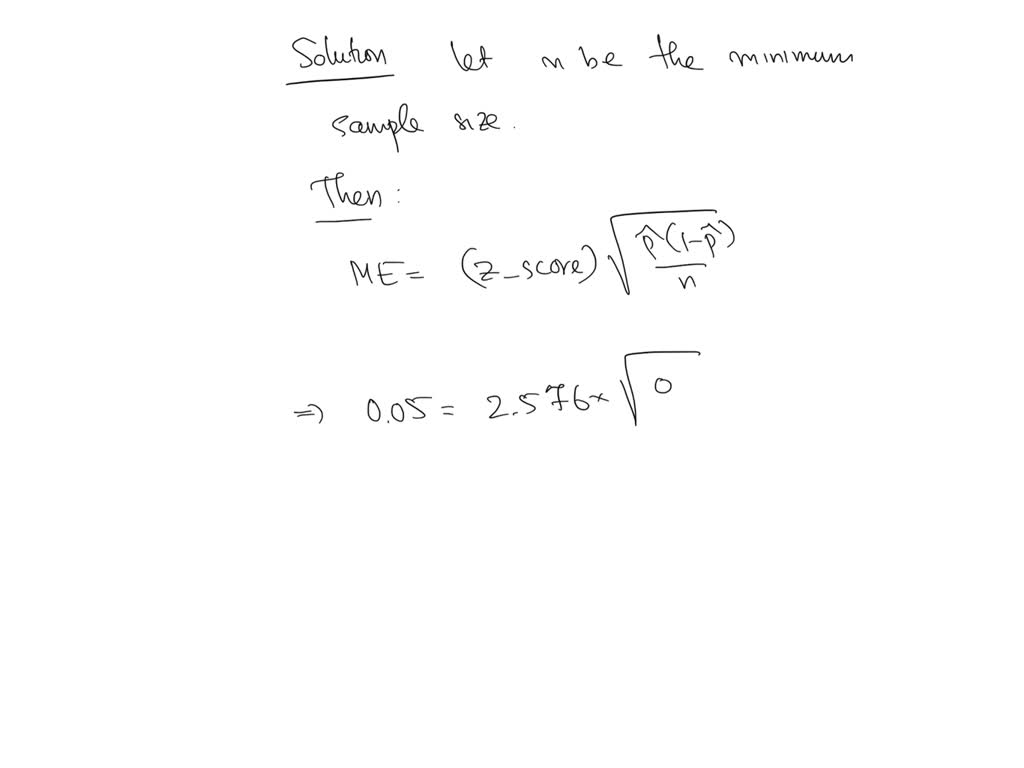 Solution let n be the minimum
sample size.
Then:
ME = (z_score) √(p̂(1-p̂)/n)
⇒ 0.05 = 2.576 × √0